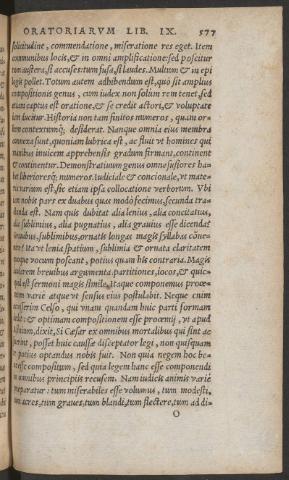 ORATORIARVM LIB. IX. 577
solicitudine, commendatione, miseratione res eget. Item
communibus locis, & in omni amplificatione: sed poscitur
tum austera, si accuses: tum fusa, si laudes. Multum & in epi
logis pollet. Totum autem adhibendum est, quò sit amplius
compositionis genus, cum iudex non solùm rem tenet, sed
etiam captus est oratione, & se credit actori, & voluptate
iam ducitur. Historia non tam finitos numeros, quàm or-
bem contextumq́; desiderat. Nanque omnia eius membra
connexa sunt, quoniam lubrica est, ac fluit vt homines qui
manibus inuicem apprehensis gradum firmant, continent
& continentur. Demonstratiuum genus omne fusiores ha-
bet liberioresq́; numeros. Iudiciale & concionale, vt mate-
ria varium est, sic etiam ipsa collocatione verborum. Vbi
iam nobis pars ex duabus quas modò fecimus, secunda tra-
ctanda est. Nam quis dubitat alia lenius, alia concitatius,
alia sublimius, alia pugnatius, alia grauius esse dicenda?
Grauibus, sublimibus, ornatis longas magis syllabas cōue-
nire? Ita vt lenia, spatium, sublimia & ornata claritatem
quoque vocum poscant, potius quàm his contraria. Magis
autem breuibus argumenta, partitiones, iocos, & quic-
quid est sermoni magis simile. Itaque componemus prooe-
mium variè atque vt sensus eius postulabit. Neque enim
accesserim Celso, qui vnam quandam huic parti formam
dedit & optimam compositionem esse prooemij, vt apud
Asinium, dixit, Si Cæsar ex omnibus mortalibus qui sint ac
fuerint, posset huic caussæ disceptator legi, non quisquam
te potius optandus nobis fuit. Non quia negem hoc be-
ne esse compositum, sed quia legem hanc esse componendi
in omnibus principiis recusem. Nam iudicis animus variè
præparatur: tum miserabiles esse volumus, tum modesti,
tum acres, tum graues, tum blandi, tum flectere, tum ad di-
O